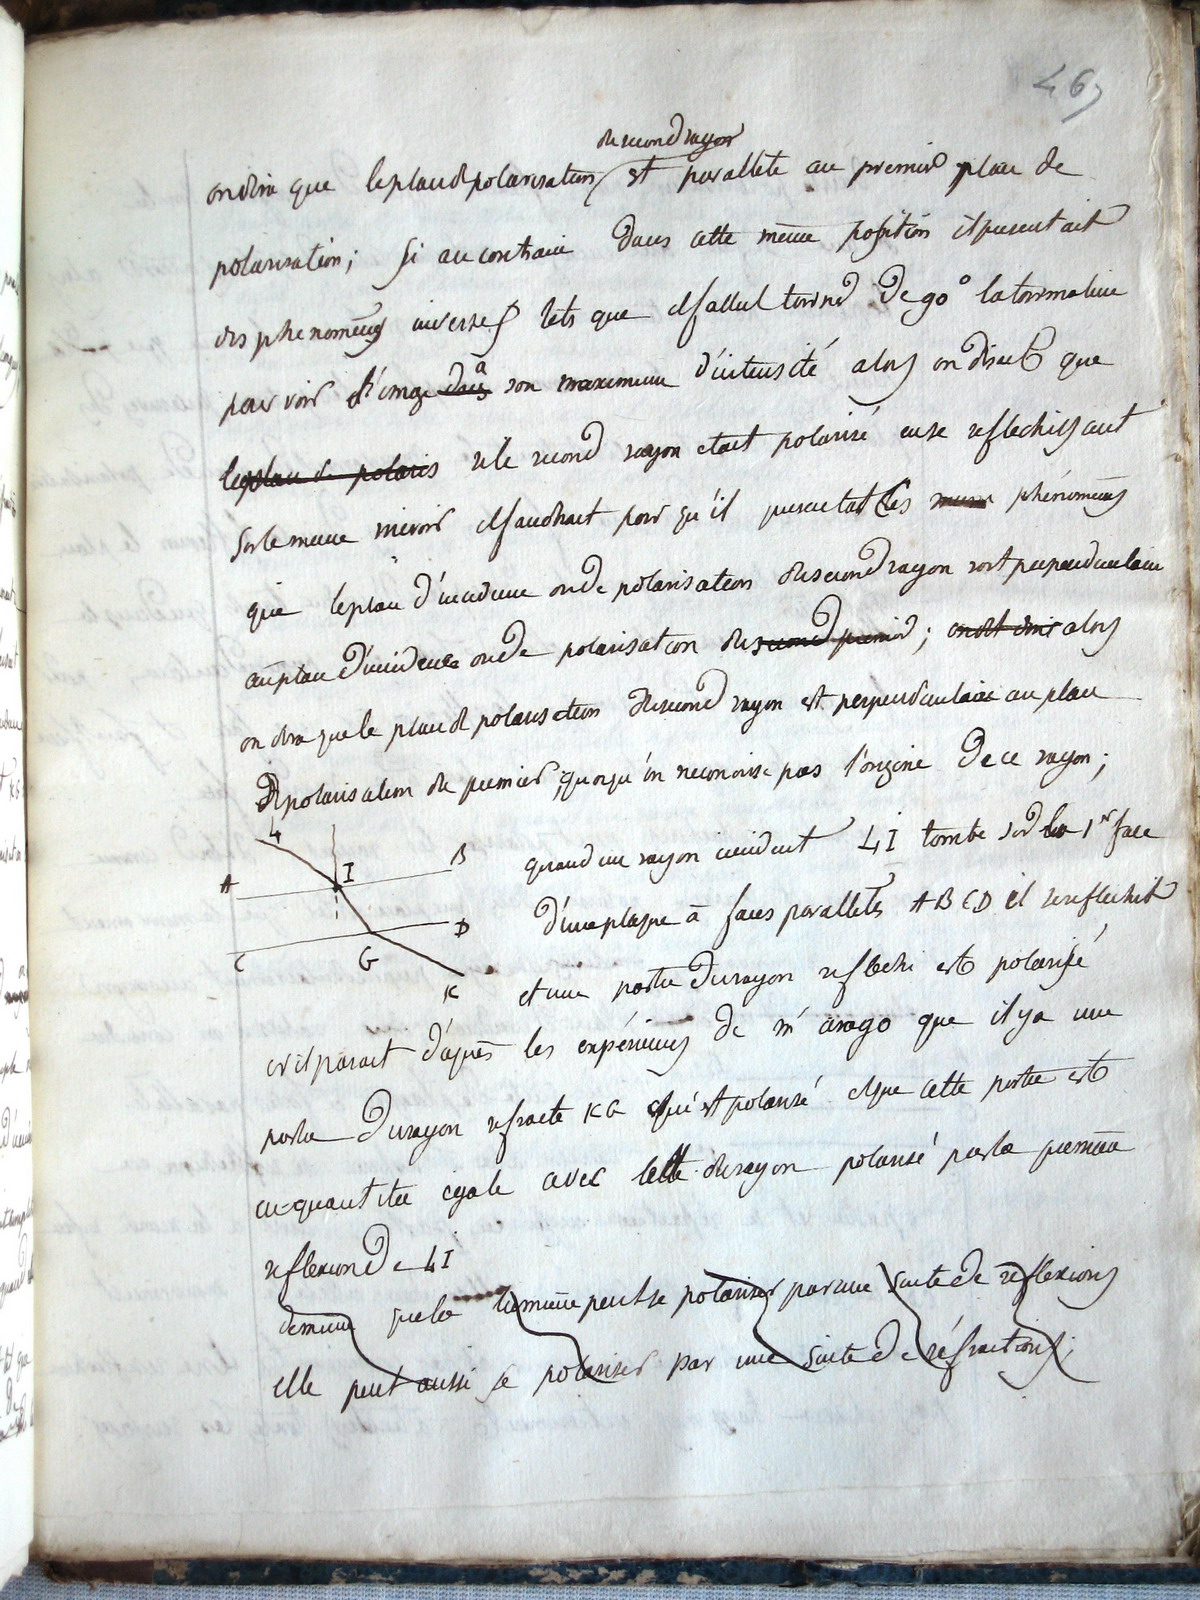 469
du second rayon
on dira que le plan d polarisation est parallele au premier plan de
polarisation; si au contraire dans cette même position il presentait
des phenomènes inverses tels que il fallut tourner de 90° la tourmaline
pour voir l'image dans à son maximum d'intensité alors on disait que
le plan de polaris si le second rayon etait polarisé en se reflechissant
sur le meme miroir il faudrait pour qu'il presentat les memes phénomènes
que le plan d'incidence ou de polarisation du second rayon soit perpendiculaire
au plan d'incidence ou de polarisation du second premier; alors
on dira que le plan d polarisation du second rayon est perpendiculaire au plan
d polarisation du premier, quoiqu'on ne connoisse pas l'origine de ce rayon;
quand un rayon incident LI tombe sur la 1re face
d'une plaque à faces paralleles ABCD il se reflechit
et une partie du rayon reflechi est polarisé
L
I
A
B
C
D
G
K
or il parait d'après les expériences de mr arago que il y a une
partie du rayon refracte KG qui est polarisé et que cette partie est
en quantitée égale avec celle du rayon polarisé par la premiere
reflexion de LI
demême que la lumière peut se polariser par une suite de reflexions
elle peut aussi se polariser par une suite de réfractions;